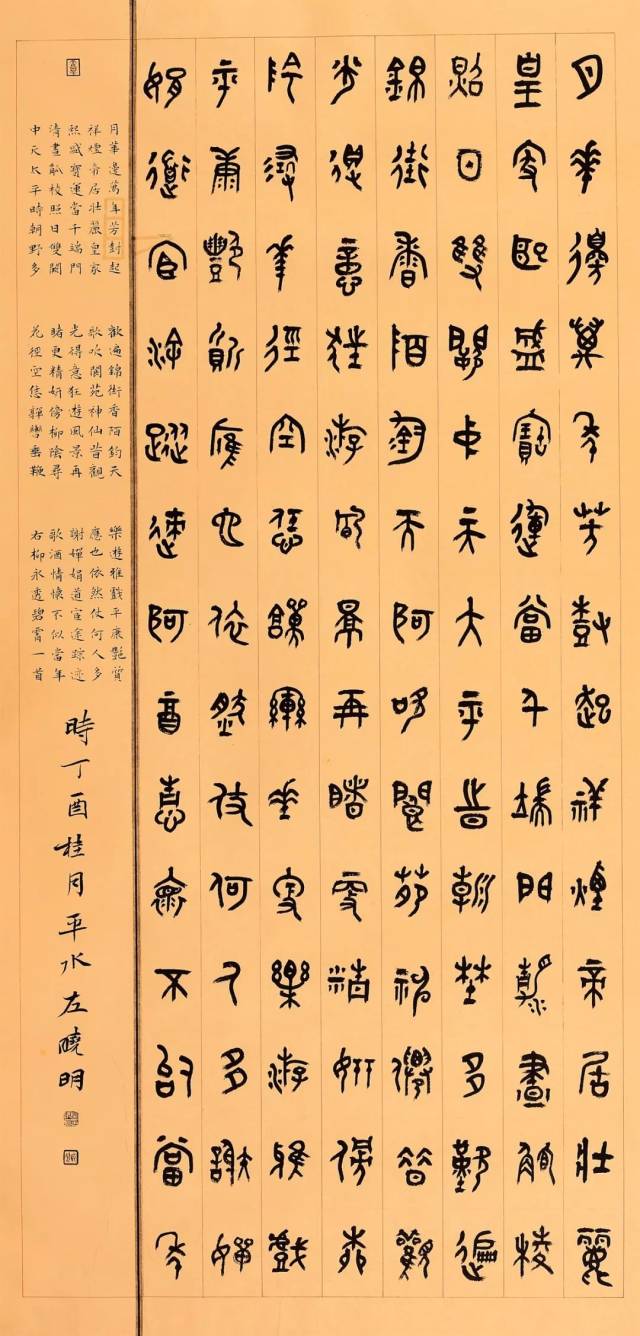 月華邊萬年芳封起祥煙帝居壯麗
皇家熙盛寶運當千端門清晝觚棱
照日雙闕中天太平時朝野多歡遍
錦街香陌鈞天歌吹閬苑神仙昔觀
光得意狂遊風景再睹更精妍傍柳
陰尋花徑空恁嚲轡垂鞭樂遊雅戲
平康艷質應也依然仗何人多謝嬋
娟道宦途蹤迹歌酒情懷不似當年
月華邊萬年芳封起
祥煙帝居壯麗皇家
熙盛寶運當千端門
清晝觚棱照日雙闕
中天太平時朝野多
歡遍錦街香陌鈞天
歌吹閬苑神仙昔觀
光得意狂遊風景再
睹更精妍傍柳陰尋
花徑空恁嚲轡垂鞭
樂遊雅戲平康艷質
應也依然仗何人多
謝嬋娟道宦途踪迹
歌酒情懷不似當年
右柳永透碧霄一首
時丁酉桂月平水左曉明